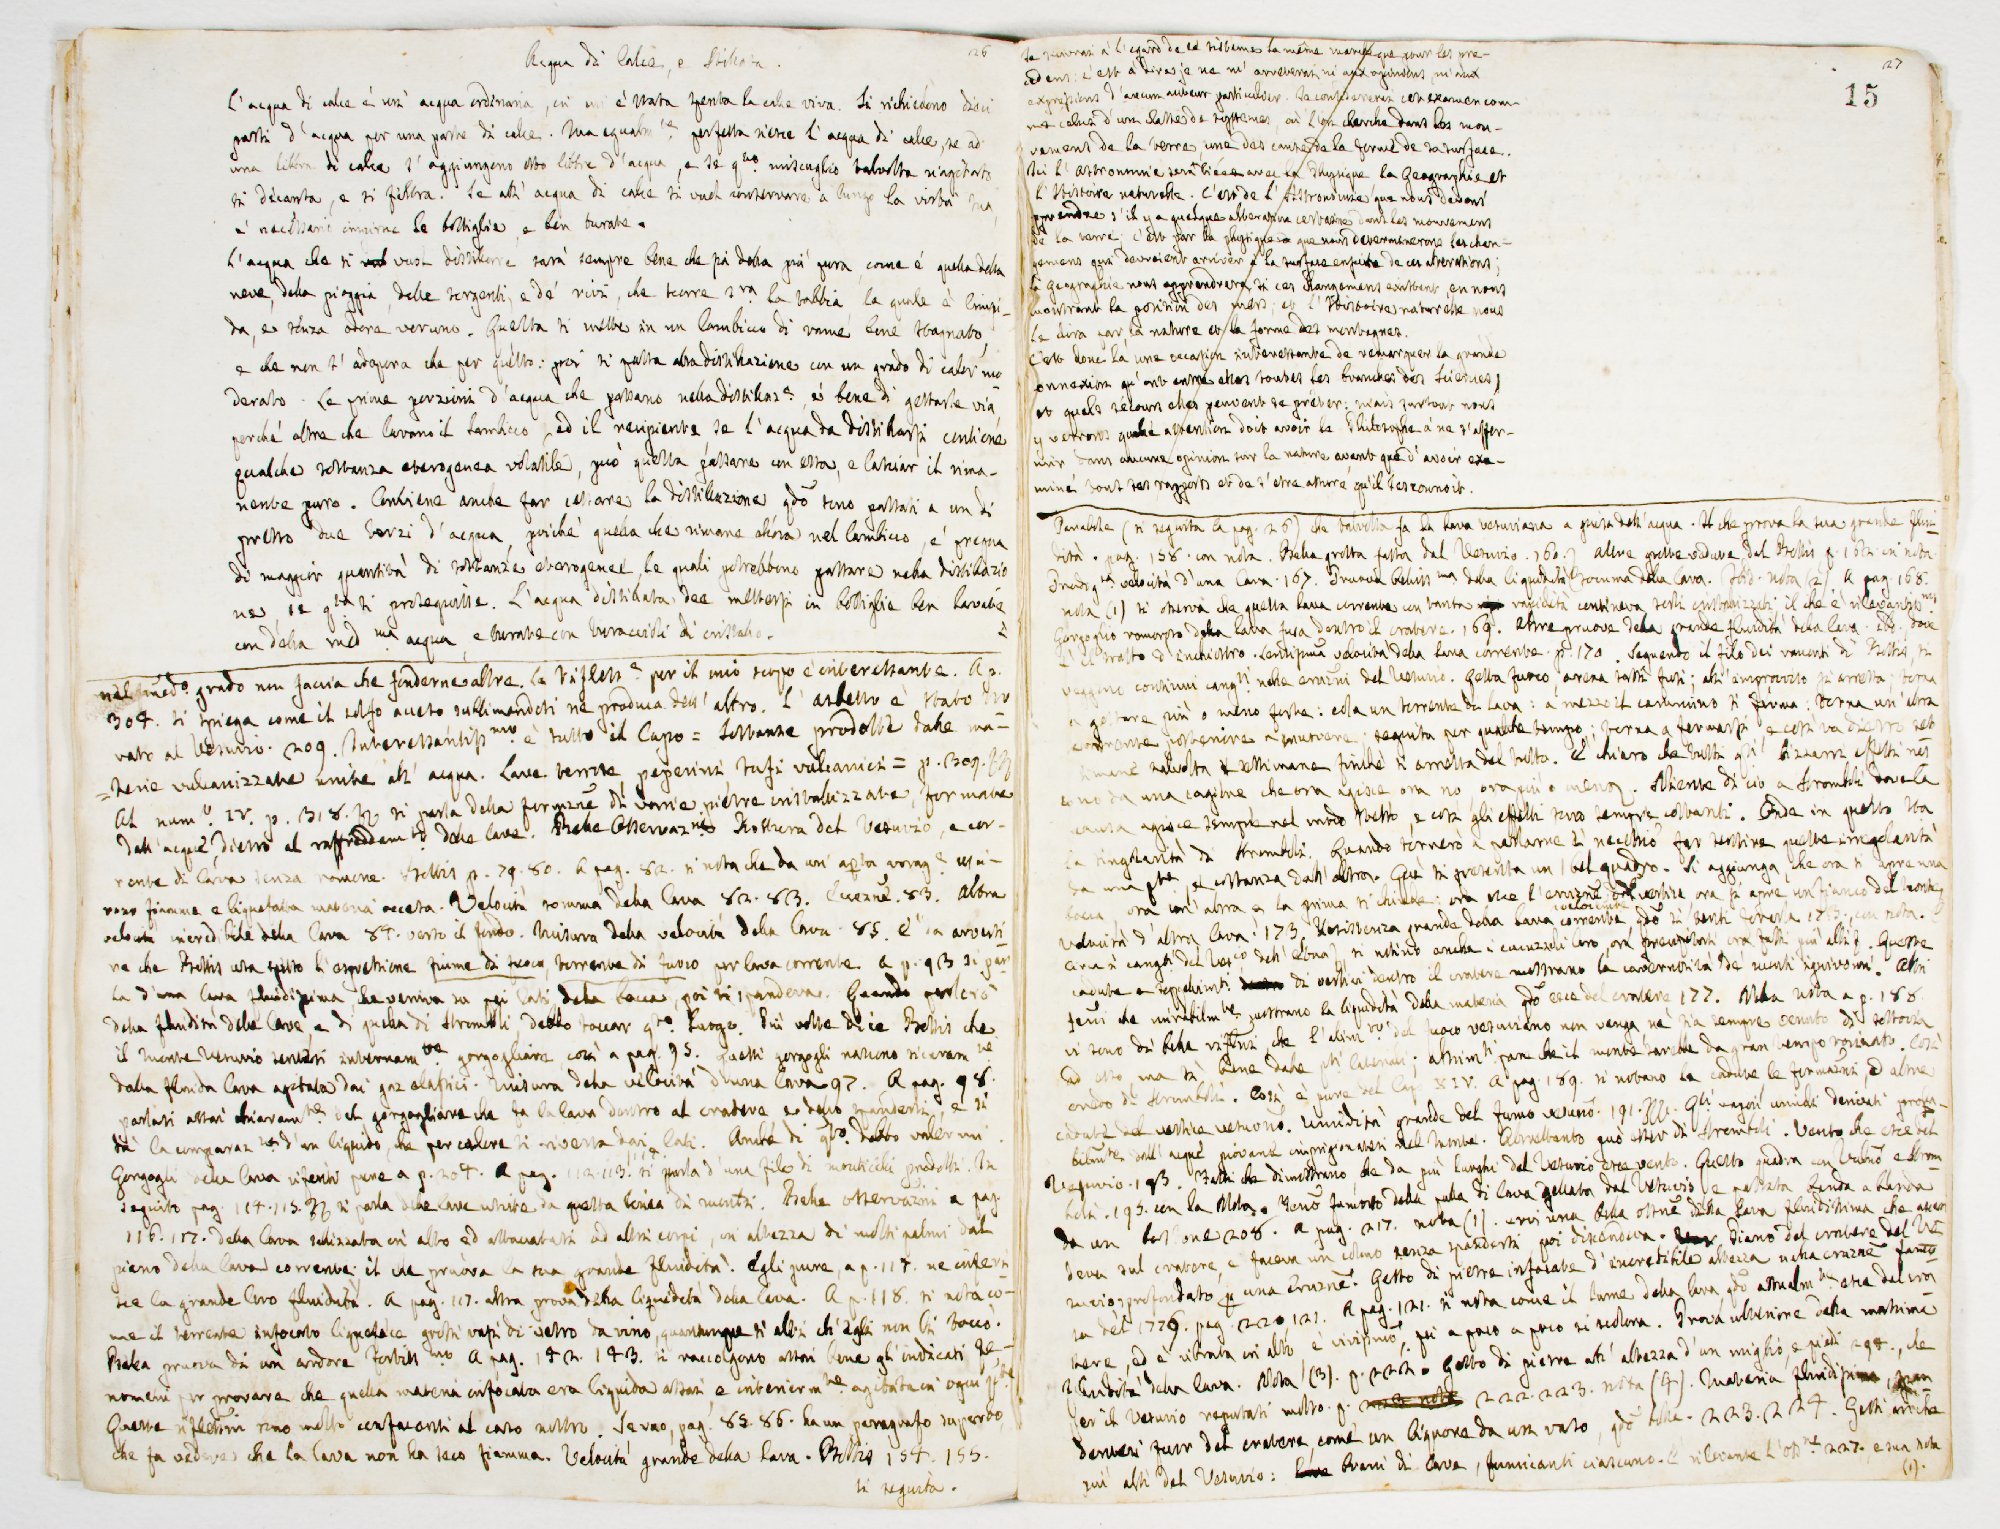 26
Acqua di Calce, e Stillata.
L'acqua di calce è un'acqua ordinaria, in cui è stata spenta la calce viva. Si richiedono dieci
parti d'acqua per una parte di calce. Ma egualm.te perfetta riesce l'acqua di calce, se ad
una libbra di calce s'aggiungono otto libbre d'acqua, e se q.sto miscuglio talvolta riagitato
si decanta, e si filtra. Se all'acqua di calce si vuol conservare a lungo la virtù sua,
è necessario empirne le bottiglie, e ben turate.
L'acqua che si vuol distillare sarà sempre bene che sia della più pura, come è quella della
neve, della pioggia, delle sorgenti, e de' rivi, che scorre s.ra la sabbia, la quale è limpi-
da, e senza odore veruno. Questa si mette in un lambicco di rame, bene stagnato,
e che non s'adopera che per questo: poi si passa alla distillazione con un grado di calor mo
derato. Le prime porzioni d'acqua che passano nella distillaz.e, è bene di gettarle via,
perché oltre che lavano il lambicco, ed il recipiente, se l'acqua da distillarsi contiene
qualche sostanza eterogenea volatile, può questa passare con essa, e lasciar il rima-
nente puro. Conviene anche far cessare la distillazione qdo sono passati a un di
presso due terzi d'acqua, poiché quella che rimane allora nel lambicco, è pregna
di maggior quantità di sostanze eterogenee, le quali potrebbono passare nella distillazio
ne, se q.sta si proseguisse. L'acqua distillata dee mettersi in bottiglie ben lavate
con della med.ma acqua, e turate con turaccioli di cristallo.
nel med.o grado non faccia che fonderne altre. La rifless.e per il mio scopo è interessante. A p.
304. si spiega come il solfo acceso sublimandosi ne produca dell'altro. L'asbesto è stato tro
vato al Vesuvio. 209. Interessantiss.mo è tutto il Capo = Sostanze prodotte dalle ma-
=terie vulcanizzate unite all'acqua. Lave terrose peperini tufi vulcanici = p. 309.
Al num.o IV. p. 318. si parla della formazne di varie pietre cristallizzate, formate
dall'acque, dietro al raffreddam.to delle lave. Belle Osservaz.ni Bottis p. 79. 80. A pag. 82. si nota che da un'
velocità incredibile della lava 84. verso il fondo. Misura della velocità della lava. 85. È da avverti
re che Bottis usa spesso l'espressione fiume di fuoco, torrente di fuoco per lava corrente. A p. 93 si par
la d'una lava fluidissima che veniva su pei lati della bocca, poi si spandeva. Quando parlerò
della fluidità delle lave e di quella di Stromboli debbo toccar q.sto luogo. Più volte dice Bottis che
il monte Vesuvio sentesi internam.te gorgogliare così a pag. 95. Questi gorgogli nascono sicuram.te
dalla fluida lava agitata dai gaz elastici. Misura della velocità d'una lava 97. A pag. 98.
parlasi assai chiaram.te del gorgogliare che fa la lava dentro al cratere
dà la comparaz.ne d'un liquido, che per calore si riversa dai lati. Anche di q.sto debbo valermi.
Gorgogli della lava riferiti pure a p. 204. A pag. 112. 113. si parla d'una fila di monticelli prodotti. In
seguito pag. 114. 115. si parla delle lave uscite da questa linea di monti. Belle osservazioni a pag.
116. 117. della lava schizzata in alto ed attaccatasi ad altri corpi, in altezza di molti palmi dal
piano della lava corrente; il che pruova la sua grande fluidità. Egli pure, a p. 117. ne inferi
sce la grande loro fluidità. A pag. 117. altra prova della liquidità della lava. A p. 118. si nota co-
me il torrente infocato liquefece grossi vasi di vetro da vino, quantunque si alzi ch'egli non li toccò.
Bella pruova di un ardore fortiss.mo A pag. 142. 143. si raccolgono assai bene gl'indicati fe-
nomeni per provare che quella materia infocata era liquida assai e interiorm.te agitata in ogni p.te
Queste riflessioni sono molto confacenti al caso nostro. Serao, pag. 85. 86. ha un paragrafo superbo,
che fa vedere che la lava non ha seco fiamma. Velocità grande della lava. Bottis 154. 155.
si seguita.
27
15
Je suivrai à l'égard de ce sistème la même marche que pour les pre-
cedens: c'est à dire, je ne m'arreterai ni aux opinions, ni aux
expressions d'aucun auteur particulier. Je considererai cet examen com-
me celui d'un classe de systemes, où l'on cherche dans les mou-
vemens de la terre, une des causes de la forme de sa surface.
Ici l'Astronomie sera liée avec la Physique la Geographie et
l'Histoire naturelle. C'est de l'Astronomie que nous devons
prendre s'il y a quelque alteration certaine dans les mouvemens
de la terre; c'est par la physique que nous determinerons les chan-
gemens qui devroient arriver à la surface ensuite de ces alterations;
la geographie nous apprendra si ces changemens existent, en nous
montrant la position des mers; et l'Histoire naturelle nous
le dira par la nature et la forme des montagnes.
C'est donc là une occasion interessante de remarquer la grande
connexion qu'ont entre elles toutes les branches des sciences,
et quels secours elles peuvent se prêter: mais surtout nous
y verrons quelle attention doit avoir le Philosophe à ne s'affer-
mir dans aucune opinion sur la nature avant que d'avoir exa-
miné tous ses rapports et de s'etre assuré qu'il les connoit.
(si seguita la pag. 26) che talvolta fa la lava vesuviana a guisa dell'acqua. Il che prova la sua grande flui
dità. pag. 158. con nota. Bella grotta fatta dal Vesuvio. 160. Altre grotte vedute dal Bottis p. 162. in nota.
velocità d'una lava. 167. Pruova beliss.ma della liquidità somma della lava. Ibid. nota (2). A pag. 168.
nota (1) si osserva che quella lava corrente con tanta rapidità conteneva sassi cristallizzati; il che è rilevantiss.mo
Gorgoglio romoroso della lava fusa dentro il cratere. 169. Altre pruove della grande fluidità della lava. ibi. dove
è il tratto d'inchiostro. Lentissima velocità della lava corrente. p. 170. Seguendo il filo dei racconti di Bottis, si
veggono continui cang.ti nelle eruzni del Vesuvio. Getta fuoco arena sassi fusi; all'improvviso si arresta; torna
a gettare più o meno forte: cola un torrente di lava: a mezzo il cammino si ferma: torna un'altra
corrente posteriore a muovere; seguita per qualche tempo; torna a fermarsi e così va dietro set
timane talvolta e settimane finché si arresta del tutto. È chiaro che tutti gli bizzarri effetti nas
cono da una cagione che ora agisce ora no ora più o meno. Niente di ciò a Stromboli dove la
causa agisce sempre nel modo stesso, e così gli effetti sono sempre costanti. Onde in questo sta
la singolarità di Stromboli. Quando tornerò a parlarne è necess.o far sentire queste irregolarità
da una p.te, e costanza dall'altra. Qui si presenta un bel quadro. Si aggiunga, che ora si apre una
bocca, ora un'altra e la prima si chiude: ora esce l'eruzne dal vertice ora si apre un fianco del monte
velocità d'altra lava. 173. Resistenza grande della lava corrente qdo si tenti romperla 175. con nota.
Circa i cang.ti del Ves.o dell'Etna, si notino anche i cucuzzoli loro, ora precipitosi ora fatti più alti. Queste
cadute e seppellim.ti di vertici dentro il cratere mostrano la cavernosità de' monti ignivomi. Altri
fenni che mirabilm.te mostrano la liquidità della materia qdo esce del cratere 177. Nella nota a p. 188.
vi sono di belle rifless.ni che l'alim.to del fuoco vesuviano non venga né sia sempre venuto di sottovia
ad esso, ma sì bene dalle p.ti laterali; altrim.ti pare che il monte sarebbe da gran tempo rovinato. Così
credo di Stromboli. Così è pure del Cap. XIV. A pag. 189. si notano la cadute le formazni, ed altre
cadute del vertice vesuvno. Umidità grande del fumo vesuvno. 191. Gli vapori umidi derivati proba-
bilm.te dall'acque piovane imprigionatesi nel monte. Altrettanto può essere di Stromboli. Vento che esce del
Vesuvio. 193. Fatti che dimostrano, che da più luoghi del Vesuvio esce vento. Questo quadra con Vulcno e Strom
boli. 195. con la Nota. Fenno famoso della palla di lava gettata dal Vesuvio e passata fonda a banda
da un bastione 208. A pag. 217. nota (1). evvi una bella ossne della lava fluidissima che ascen
deva sul cratere, e faceva un colmo senza spandersi poi discendeva. Piano del cratere del Ve
suvio sprofondato p. una eruzne. Getto di pietre infocate d'incredibile altezza nella eruzne famo
sa del 1779. pag. 220. 121. A pag. 121. si nota come il lume della lava, qdo attualm.te esce del cra
tere, ed è vibrata in alto è vivissimo, poi a poco a poco si scolora. Prova ulteriore della massima
fluidità della lava. Nota (3). p. 222. Getto di pietre all'altezza d'un miglio, e piedi 298., che
per il Vesuvio reputasi molto. p. 222. 223. nota (4). Materia fluidissima
derivasi fuor del cratere, come un liquore da un vaso, qdo bolle. 223. 224. Getti anche
più alti del Vesuvio: brani di lava, fumicanti ciascuno. È rilevante l'oss.ne 227. e sua nota
(1).